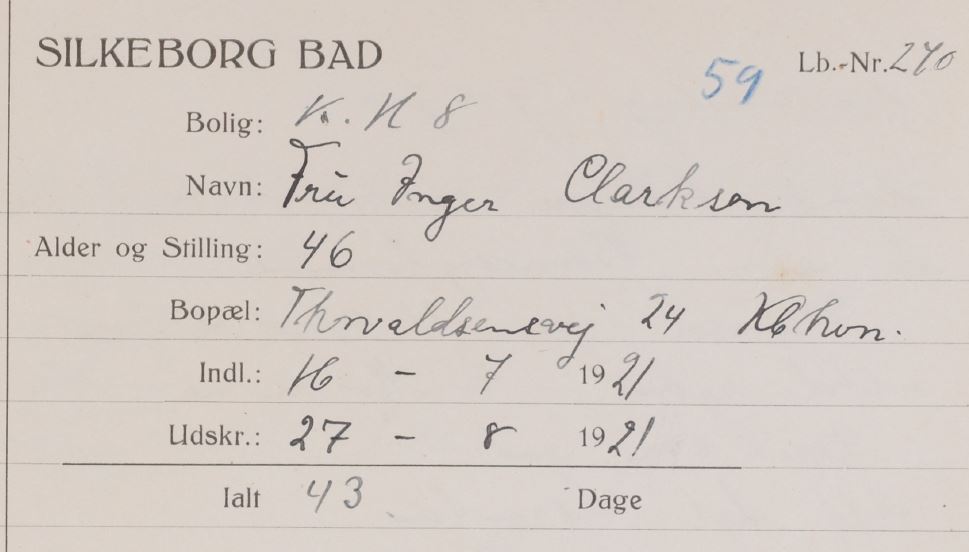 SILKEBORG BAD
59 Lb.-Nr. 270
Bolig: K. H 8
Navn: Fru Inger Clarkson
Alder og Stilling: 46
Bopæl: Thorvaldsensvej 24 Kbhvn.
Indl.: 16 - 7 1921
Udskr.: 27 - 8 1921
Ialt 43 Dage